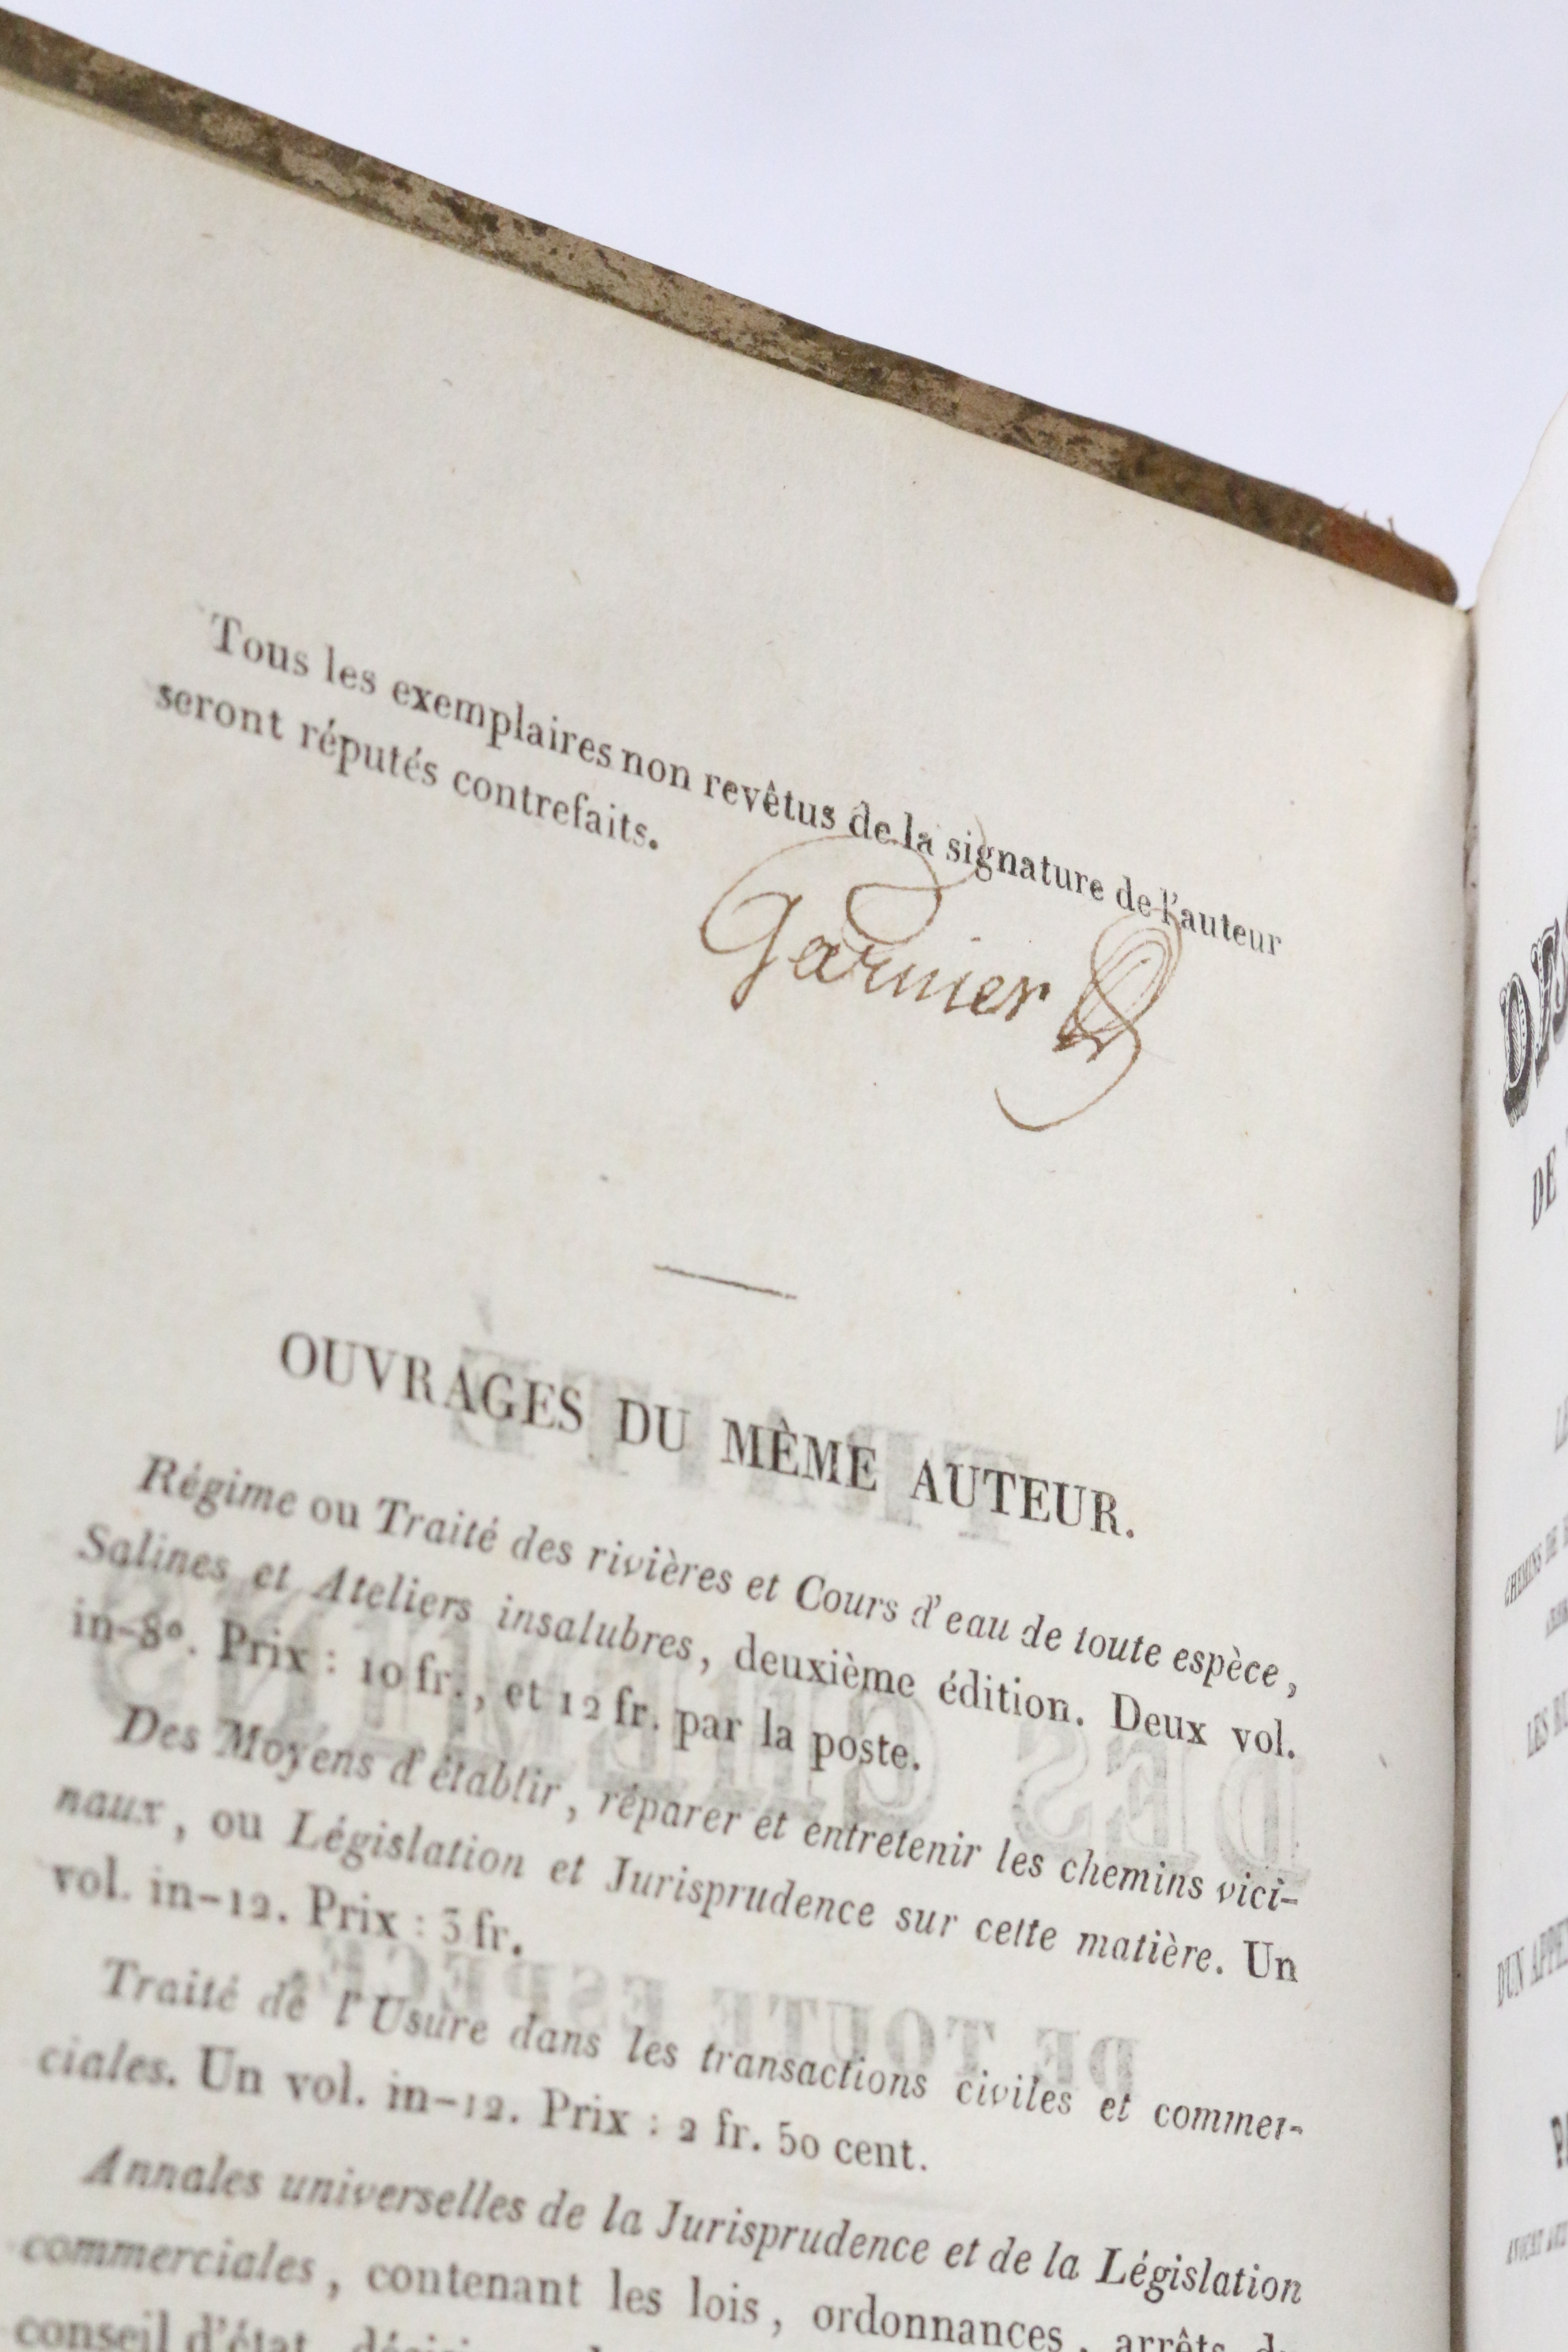 Tous les exemplaires non revêtus de la signature de l'auteur
seront réputés contrefaits.
Garnier
OUVRAGES DU MÈME AUTEUR.
Régime ou Traité des rivières et Cours d'eau de toute espèce,
Salines et Ateliers insalubres, deuxième édition. Deux vol.
in-8°. Prix : 10 fr., et 12 fr. par la poste.
Des Moyens d'établir, réparer et entretenir les chemins vici-
naux, ou Législation et Jurisprudence sur cette matière. Un
vol. in-12. Prix : 3 fr.
Traité de l'Usure dans les transactions civiles et commer-
ciales. Un vol. in-12. Prix : 2 fr. 50 cent.
Annales universelles de la Jurisprudence et de la Législation
commerciales, contenant les lois, ordonnances, arrêts du
conseil d'état,
DES
DE
CHEMINS DE
LES
D'UN APPEN